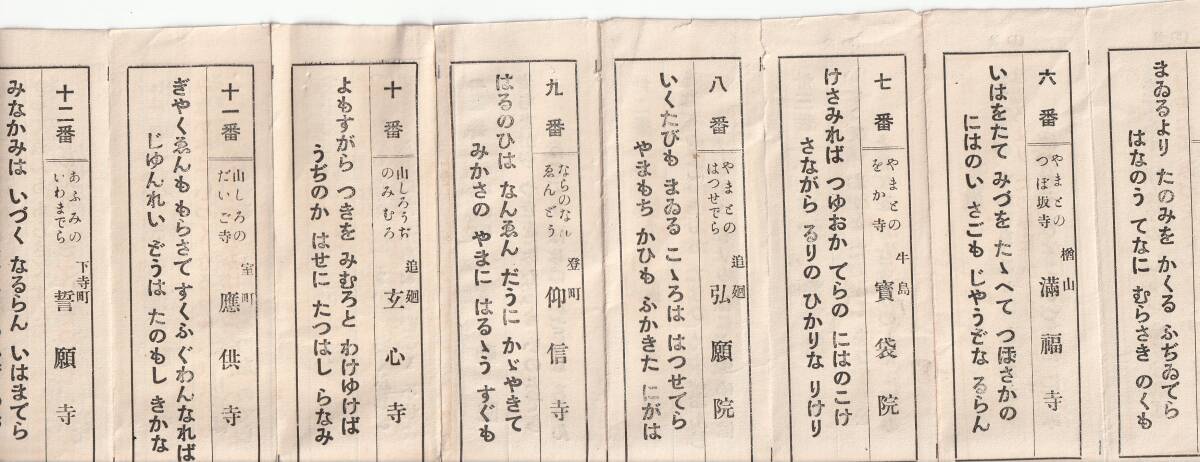 まゐるより たのみを かくる ふぢゐでら
はなのう てなに むらさき のくも
六番
やまとの
つぼ坂寺
楢山
滿福寺
いはをたて みづを たゝへて つぼさかの
にはのい さごも じやうどな るらん
七番
やまとの
をか寺
牛島
寶袋院
けさみれば つゆおか てらの にはのこけ
さながら るりの ひかりな りけり
八番
やまとの
はつせでら
追廻
弘願院
いくたびも まゐる こゝろは はつせでら
やまもち かひも ふかきた にがは
九番
ならのなん
ゑんどう
登町
仰信寺
はるのひは なんゑん だうに かゞやきて
みかさの やまに はるゝう すぐも
十番
山しろうぢ
のみむろ
追廻
玄心寺
よもすがら つきを みむろと わけゆけば
うぢのか はせに たつはし らなみ
十一番
山しろの
だいご寺
室町
應供寺
ぎやくゑんも もらさで すくふ ぐわんなれば
じゆんれい だうは たのもし きかな
十二番
あふみの
いわまでら
下寺町
誓願寺
みなかみは いづく なるらん いはまでら